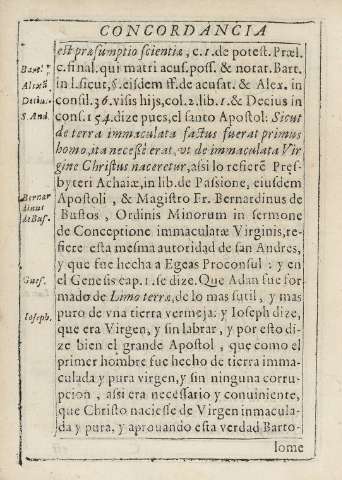 CONCORDANCIA
est præsumptio scientiæ, c.1. de potest. Præl.
c. final. qui matri acus. poss. & notat. Bart.
in l. sicut, §. eisdem ff. de acusat. & Alex. in
consil. 36. visis hijs, col. 2. lib. 1. & Decius in
cons. 154. dize pues, el santo Apostol: Sicut
de terra immaculata factus fuerat primus
homo, ita necesse erat, vt de immaculata Vir
gine Christus nasceretur, assi lo refierē Pres-
byteri Achaiæ, in lib. de Passione, eiusdem
Apostoli, & Magistro Fr. Bernardinus de
Bustos, Ordinis Minorum in sermone
de Conceptione immaculatæ Virginis, re-
fiere esta mesma autoridad de san Andres,
y que fue hecha a Egeas Proconsul: y en
el Genesis cap. 1. se dize. Que Adan fue for
mado de Limo terræ, de lo mas sutil, y mas
puro de vna tierra vermeja: y Ioseph dize,
que era Virgen, y sin labrar, y por esto di-
ze bien el grande Apostol, que como el
primer hombre fue hecho de tierra imma-
culada y pura virgen, y sin ninguna corru-
pcion, assi era necessario y conuiniente,
que Christo naciesse de Virgen inmacula-
da y pura, y aprouando esta verdad Barto-
lome
Alixā
Decius
S. And.
Bernar
dinus
de Bus.
Gues.
Ioseph.